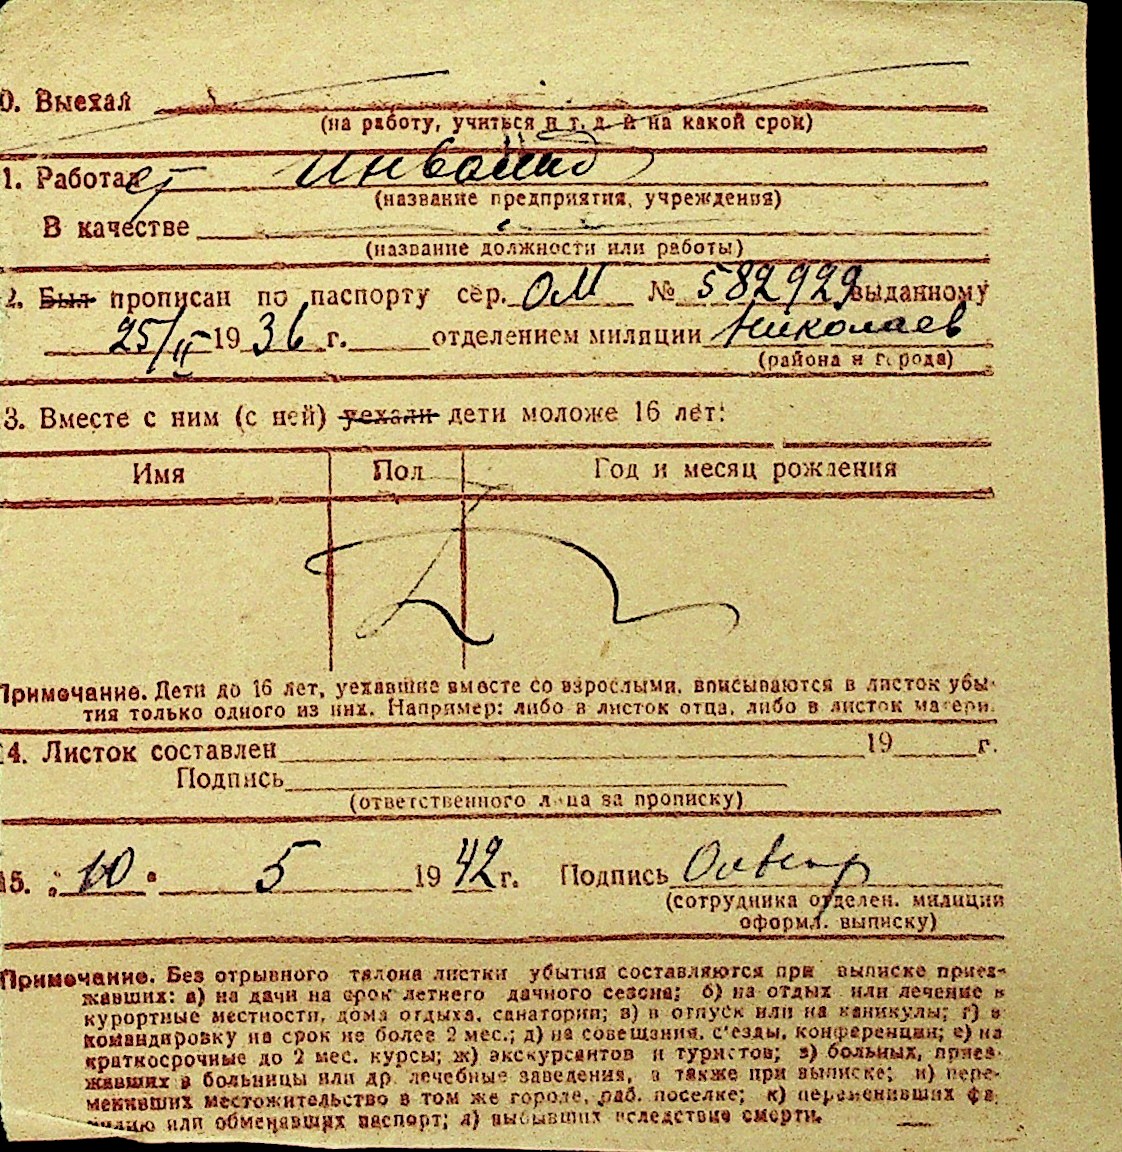 0. Выехал
(на работу, учиться и т. д. и на какой срок)
1. Работает инвалид
(название предприятия, учреждения)
В качестве
(название должности или работы)
2. Был прописан по паспорту сер. ОМ № 582929 выданному
25/II 1936 г. отделением милиции Николаев
(района и города)
3. Вместе с ним (с ней) уехали дети моложе 16 лет:
Имя Пол Год и месяц рождения
Примечание. Дети до 16 лет, уехавшие вместе со взрослыми, вписываются в листок убы-
тия только одного из них. Например: либо в листок отца, либо в листок матери.
14. Листок составлен 19 г.
Подпись
(ответственного лица за прописку)
15. "10" 5 1942 г. Подпись
(сотрудника отделен. милиции
оформл. выписку)
Примечание. Без отрывного талона листки убытия составляются при выписке приез-
жавших: а) на дачи на срок летнего дачного сезона; б) на отдых или лечение в
курортные местности, дома отдыха, санатории; в) в отпуск или на каникулы; г) в
командировку на срок не более 2 мес.; д) на совещания, с'езды, конференции; е) на
краткосрочные до 2 мес. курсы; ж) экскурсантов и туристов; з) больных, приез-
жавших в больницы или др. лечебные заведения, а также при выписке; и) пере-
менивших местожительство в том же городе, раб. поселке; к) переменивших фа-
милию или обменявших паспорт; л) выбывших вследствие смерти.